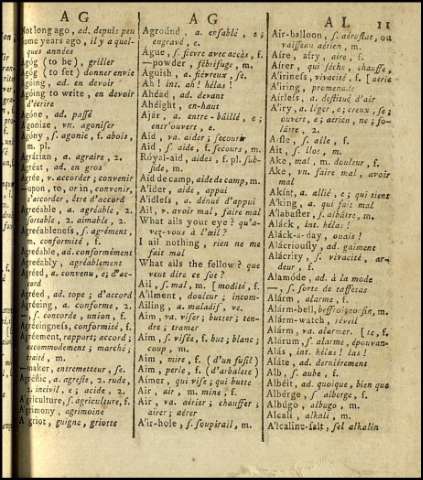 A G
A G
A L
11
Not long ago, ad. depuis peu
Some years ago, il y a quel-
ques années
Agóg (to be), griller
Agóg (to set) donner envie
Agóing, ad. en devoir
Agóing to write, en devoir
d'écrire
Agóne, ad. passé
Agonize, vn. agoniser
Agony, s. agonie, f. abois,
m. pl.
Agrárian, a. agraire, 2.
Agrést, ad. en gros
Agrée, v. accorder; convenir
—upon, to, or in, convenir,
s'accorder, être d'accord
Agréeable, a. agréable, 2.
sortable, 2. aimable, 2.
Agréeableness, s. agrément,
m. conformité, f.
conformité, agrément
Agréeably, agréablement
Agréed, a. convenu, e; d'ac-
cord
Agréed, ad. tope; d'accord
Agréeing, a. conforme, 2.
—, s. concorde, union, f.
Agréeingness, conformité, f.
Agréement, rapport; accord;
accommodement; marché;
traité, m.
—maker, entremetteur, se
Agréstic, a. agreste, 2. rude,
2. incivil, e; acide, 2.
A'griculture, s. agriculture, f.
A'grimony, agrimoine
A'griot, guigne, griotte
Agróund, a. ensablé, e;
engravé, e.
Ague, s. fievre avec accès, f.
—powder, fébrifuge, m.
Aguish, a. fiévreux, se.
Ah! int. ah! hélas!
Ahéad, ad. devant
Ahéight, en-haut
Ajár, a. entre-bâillé, e;
entr'ouvert, e.
Aid, va. aider; secourir
Aid, s. aide, f. secours, m.
Róyal-aid, aides, f. pl. sub-
side, m.
Aid de camp, aide de camp, m.
A'ider, aide, appui
A'idless, a. dénué d'appui
Ail, v. avoir mal, faire mal
What ails your eye? qu'a-
vez-vous à l'œil?
I ail nothing, rien ne me
fait mal
What ails the fellow? que
veut dire ce sot?
Ail, s. mal, m. [modité, f.
A'ilment, douleur; incom-
A'iling, a. maladif, ve.
Aim, va. viser; butter; ten-
dre; tramer
Aim, s. visée, f. but, blanc;
coup, m.
Aim, mire, f. (d'un fusil)
Aim, perle, f. (d'arbalete)
Aimer, qui vise; qui butte
Air, air, m. mine, f.
Air, va. aérier; chauffer;
airer; aérer
A'ir-hole, s. soupirail, m.
Air-balloon, s. aérostat, ou
vaisseau aérien, m.
Aíre, airy, aire, f.
Airer, qui séche, chauffe,
A'iriness, vivacité, f. [aérie
A'iring, promenade
Airless, a. destitué d'air
A'iry, a. léger, e; creux, se;
ouvert, e; aérien, ne; fo-
lâtre, 2.
Aisle, s. aîle, f.
Ait, s. îlot, m.
Ake, mal, m. douleur, f.
Ake, vn. faire mal, avoir
mal
Akín, a. allié, e; qui tient
A'king, a. qui fait mal
A'labaster, s. albâtre, m.
Aláck, int. héla!
Aláck-a-day, ouais!
Aláckriously, ad. gaiment
Alácrity, s. vivacité, ar-
deur, f.
Alamóde, ad. à la mode
—, s. sorte de taffetas
Alárm, alarme, f.
Alárm-bell, beffroi; tocsin, m.
Alárm-watch, réveil
Alárm, va. alarmer. [te, f.
Alárum, s. alarme, épouvan-
Alás, int. hélas! las!
Aláte, ad. dernièrement
Alb, s. aube, f.
Albéit, ad. quoique, bien que
Albérge, s. alberge, f.
Albúgo, albugo, m.
A'lcali, alkali, m.
A'lcaline-salt, sel alkalin